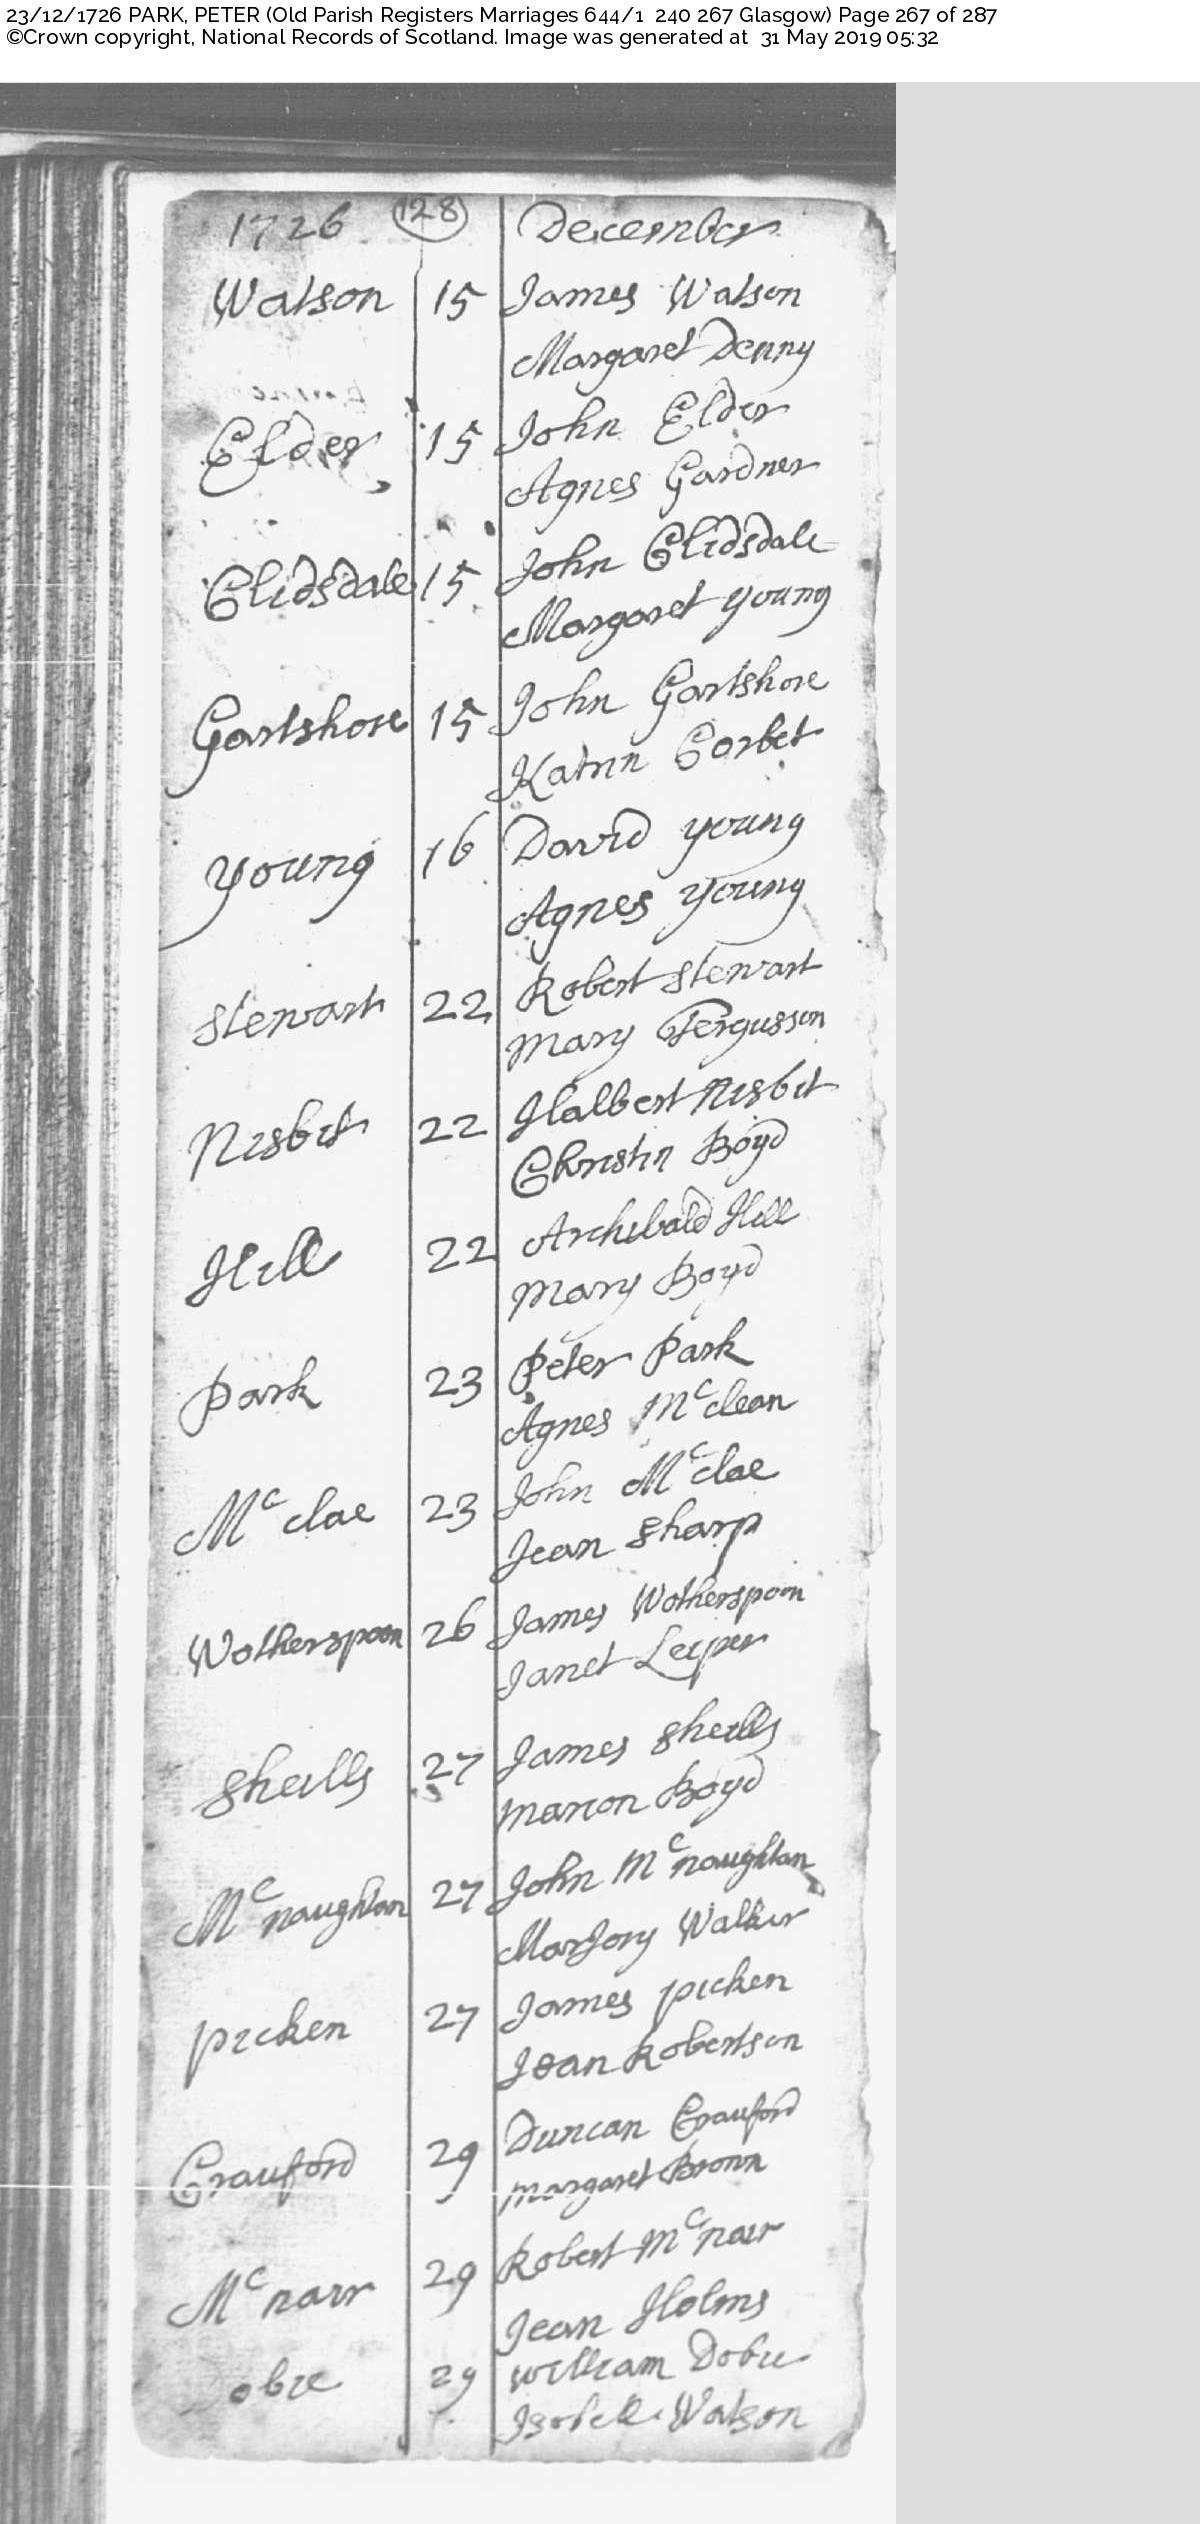 23/12/1726 PARK, PETER (Old Parish Registers Marriages 644/1 240 267 Glasgow) Page 267 of 287
©Crown copyright, National Records of Scotland. Image was generated at 31 May 2019 05:32
1726 128 December
Watson 15 James Watson
Margaret Denny
Elder 15 John Elder
Agnes Gardner
Clidsdale 15 John Clidsdale
Margaret young
Gartshore 15 John Gartshore
Katrin Corbet
young 16 David young
Agnes young
Stewart 22 Robert Stewart
Mary Fergusson
Nisbit 22 Halbert Nisbit
Christin Boyd
Hill 22 Archibald Hill
Mary Boyd
Park 23 Peter Park
Agnes Mcclean
Mcclae 23 John Mcclae
Jean Sharp
Wotherspoon 26 James Wotherspoon
Janet Leiper
Sheills 27 James Sheills
Marion Boyd
Mcnaughtan 27 John Mcnaughtan
Marjory Walker
picken 27 James picken
Jean Robertson
Crauford 29 Duncan Crauford
Margaret Brown
Mcnair 29 Robert Mcnair
Jean Holms
obie 29 William Dobie
Isobell Watson